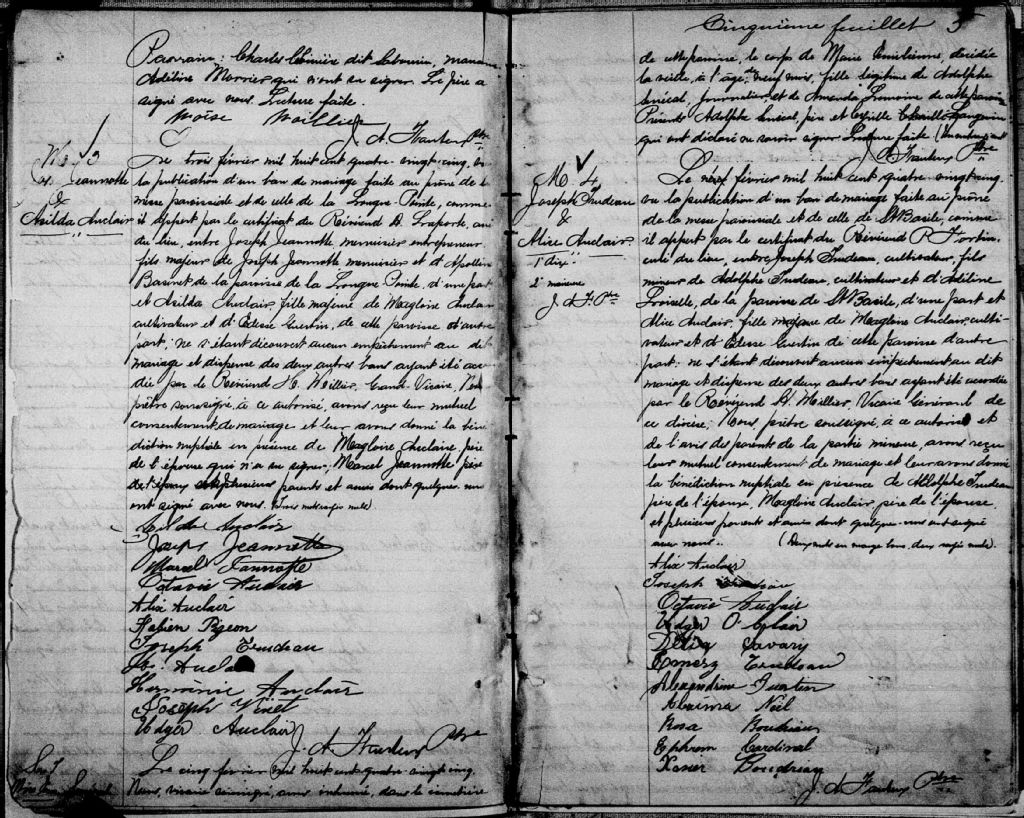 Parrain: Charles dit
Adéline Morrier qui n'ont su signer. Le père a
signé avec nous. Lecture faite.
Moïse
J. A. Ptre
M. 3
Jeannotte
&
Azilda Auclair
Le trois février mil huit cent quatre-vingt-cinq, vu
la publication d'un ban de mariage faite au prône de la
messe paroissiale et de celle de la Longue Pointe, comme
il appert par le certificat du Révérend curé
du lieu, entre Joseph Jeannotte menuisier entrepreneur
fils majeur de Joseph Jeannotte menuisier et d'
de la paroisse de la Longue Pointe, d'une part
et Azilda Auclair, fille majeure de Magloire Auclair
cultivateur et d'Edesse Guertin, de cette paroisse d'autre
part, ne s'étant découvert aucun empêchement au dit
mariage et dispense des deux autres bans ayant été accor
dée par le Révérend Vicaire, Nous
prêtre soussigné, à ce autorisé, avons reçu leur mutuel
consentement de mariage et leur avons donné la béné
diction nuptiale en présence de Magloire Auclair père
de l'épouse qui n'a su signer; Marcel Jeannotte père
de l'époux et plusieurs parents et amis dont quelques uns
ont signé avec nous. (Trois mots rayés nuls)
Auclair
Joseph Jeannotte
Marcel Jannotte
Octavie Auclair
Alix Auclair
Fabien Pigeon
Joseph Trudeau
Herminie Auclair
Joseph Vinet
Udger Auclair
J. A. Ptre
Le cinq février mil huit cent quatre-vingt-cinq
Nous, vicaire soussigné, avons inhumé, dans le cimetière
Cinquième feuillet 5
de cette paroisse, le corps de Marie Emilienne, décédée
la veille, à l'âge de neuf mois, fille légitime de Adolphe
Sénécal, journalier, et de Amanda de cette paroisse
Présents Adolphe Sénécal, père et
qui ont déclaré ne savoir signer. Lecture faite
J. A. Ptre
M. 4
Joseph Trudeau
&
Alice Auclair
J. A. F. Ptre
Le février mil huit cent quatre-vingt-cinq
vu la publication d'un ban de mariage faite au prône
de la messe paroissiale et de celle de St Basile, comme
il appert par le certificat du Révérend P. Fortin
curé du lieu, entre Joseph Trudeau, cultivateur, fils
mineur de Adolphe Trudeau, cultivateur et d'Adéline
Loiselle, de la paroisse de St Basile, d'une part et
Alice Auclair, fille majeure de Magloire Auclair, culti-
vateur et d'Edesse Guertin de cette paroisse d'autre
part; ne s'étant découvert aucun empêchement au dit
mariage et dispense des deux autres bans ayant été accordée
par le Révérend Vicaire Général de
ce diocèse; Nous, prêtre soussigné, à ce autorisé et
de l'avis des parents de la partie mineure, avons reçu
leur mutuel consentement de mariage et leur avons donné
la bénédiction nuptiale en présence de Adolphe Trudeau
père de l'époux, Magloire Auclair père de l'épouse
et plusieurs parents et amis dont quelques-uns ont signé
avec nous.
Alix Auclair
Joseph Trudeau
Octavie Auclair
Udger
Délia Savary
Trudeau
Alexandrine
Noël
Rosa
Ephrem Cardinal
Xavier Boudreau
J. A. Ptre